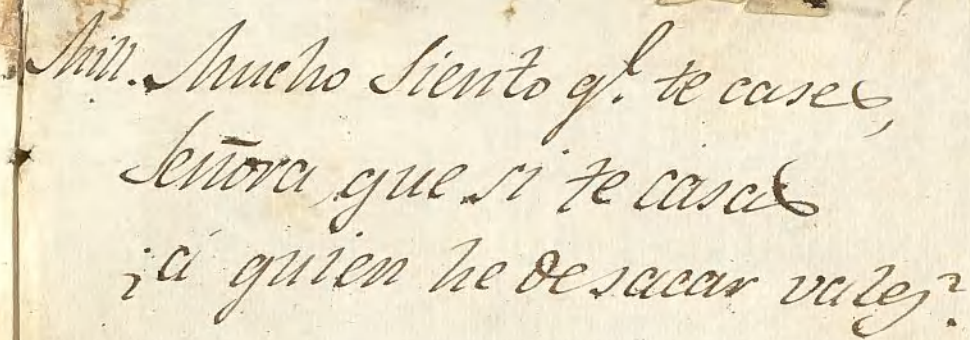 Mill. Mucho siento q.e te cases,
Señora, que si te casas
¿á quien he de sacar vales?